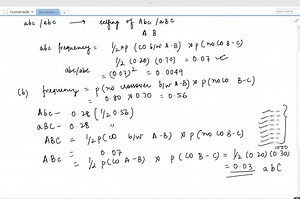 numerade
abc/abc → selfing of Abc/aBC
A B
abc frequency = 1/2 × p (CO b/w A-B) × p (no CO B-C)
1/2 (0.20) (0.70) = 0.07
abc/abc = (0.07)² = 0.0049
(b) frequency = p (no crossover b/w A-B) × p (no CO B-C)
= 0.80 × 0.70 = 0.56
Abc - 0.28 (1/2 0.56)
aBC - 0.28 "
ABC = 1/2 p (CO b/w A-B) × p (no CO B-C)
ABC = 0.07
ABc = 1/2 p (CO A-B) × p (CO B-C) = 1/2 (0.20) (0.30)
= 0.03 abC
1000